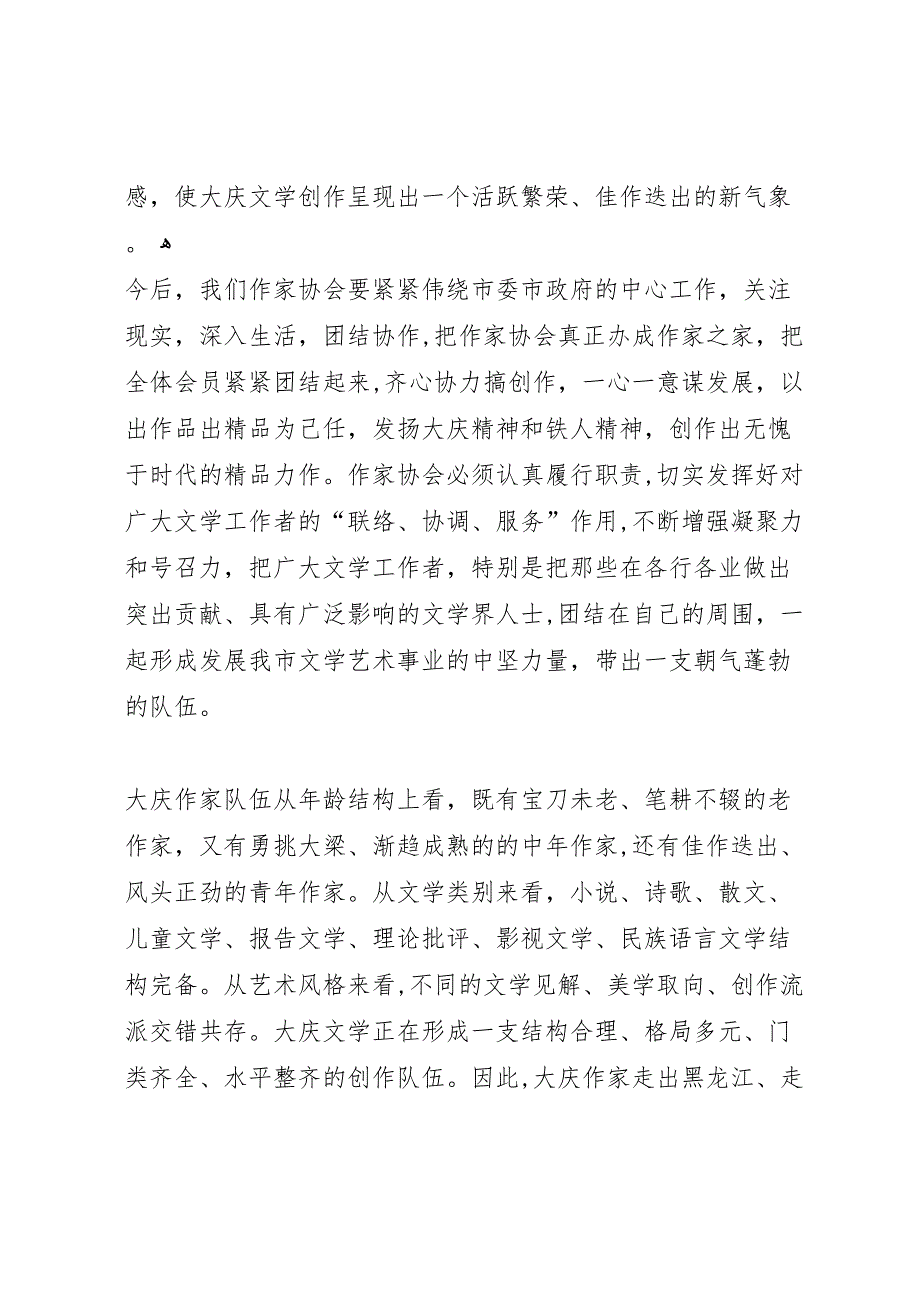 感，使大庆文学创作呈现出一个活跃繁荣、佳作迭出的新气象
。ﻫ
今后，我们作家协会要紧紧伟绕市委市政府的中心工作，关注
现实，深入生活，团结协作,把作家协会真正办成作家之家，把
全体会员紧紧团结起来,齐心协力搞创作，一心一意谋发展，以
出作品出精品为己任，发扬大庆精神和铁人精神，创作出无愧
于时代的精品力作。作家协会必须认真履行职责,切实发挥好对
广大文学工作者的“联络、协调、服务”作用,不断增强凝聚力
和号召力，把广大文学工作者，特别是把那些在各行各业做出
突出贡献、具有广泛影响的文学界人士,团结在自己的周围，一
起形成发展我市文学艺术事业的中坚力量，带出一支朝气蓬勃
的队伍。
大庆作家队伍从年龄结构上看，既有宝刀未老、笔耕不辍的老
作家，又有勇挑大梁、渐趋成熟的的中年作家,还有佳作迭出、
风头正劲的青年作家。从文学类别来看，小说、诗歌、散文、
儿童文学、报告文学、理论批评、影视文学、民族语言文学结
构完备。从艺术风格来看,不同的文学见解、美学取向、创作流
派交错共存。大庆文学正在形成一支结构合理、格局多元、门
类齐全、水平整齐的创作队伍。因此,大庆作家走出黑龙江、走